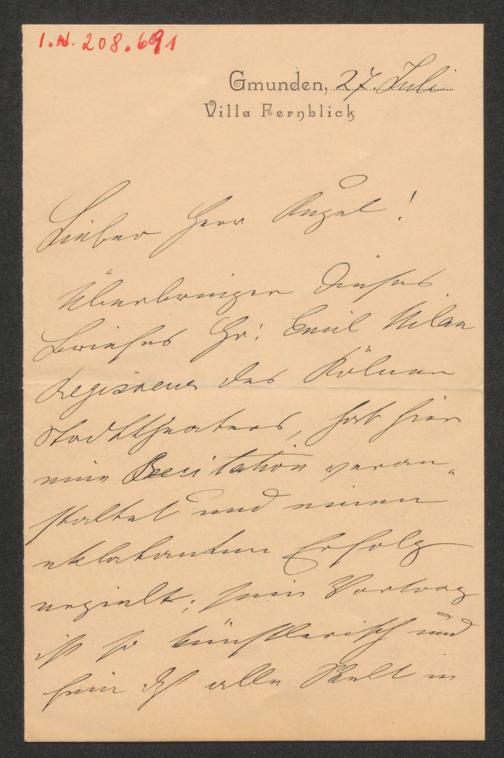 I.N. 208.691
Gmunden, 27. Juli
Villa Fernblick
Lieber Herr Angel!
Überbringer dieses
Briefes Hr: Emil Milan
Regisseur des Kölner
Stadttheaters, hat hier
eine Recitation veran-
staltet und einen
eklatanten Erfolg
erzielt; sein Vortrag
ist so künstlerisch und
fein daß alle Welt in